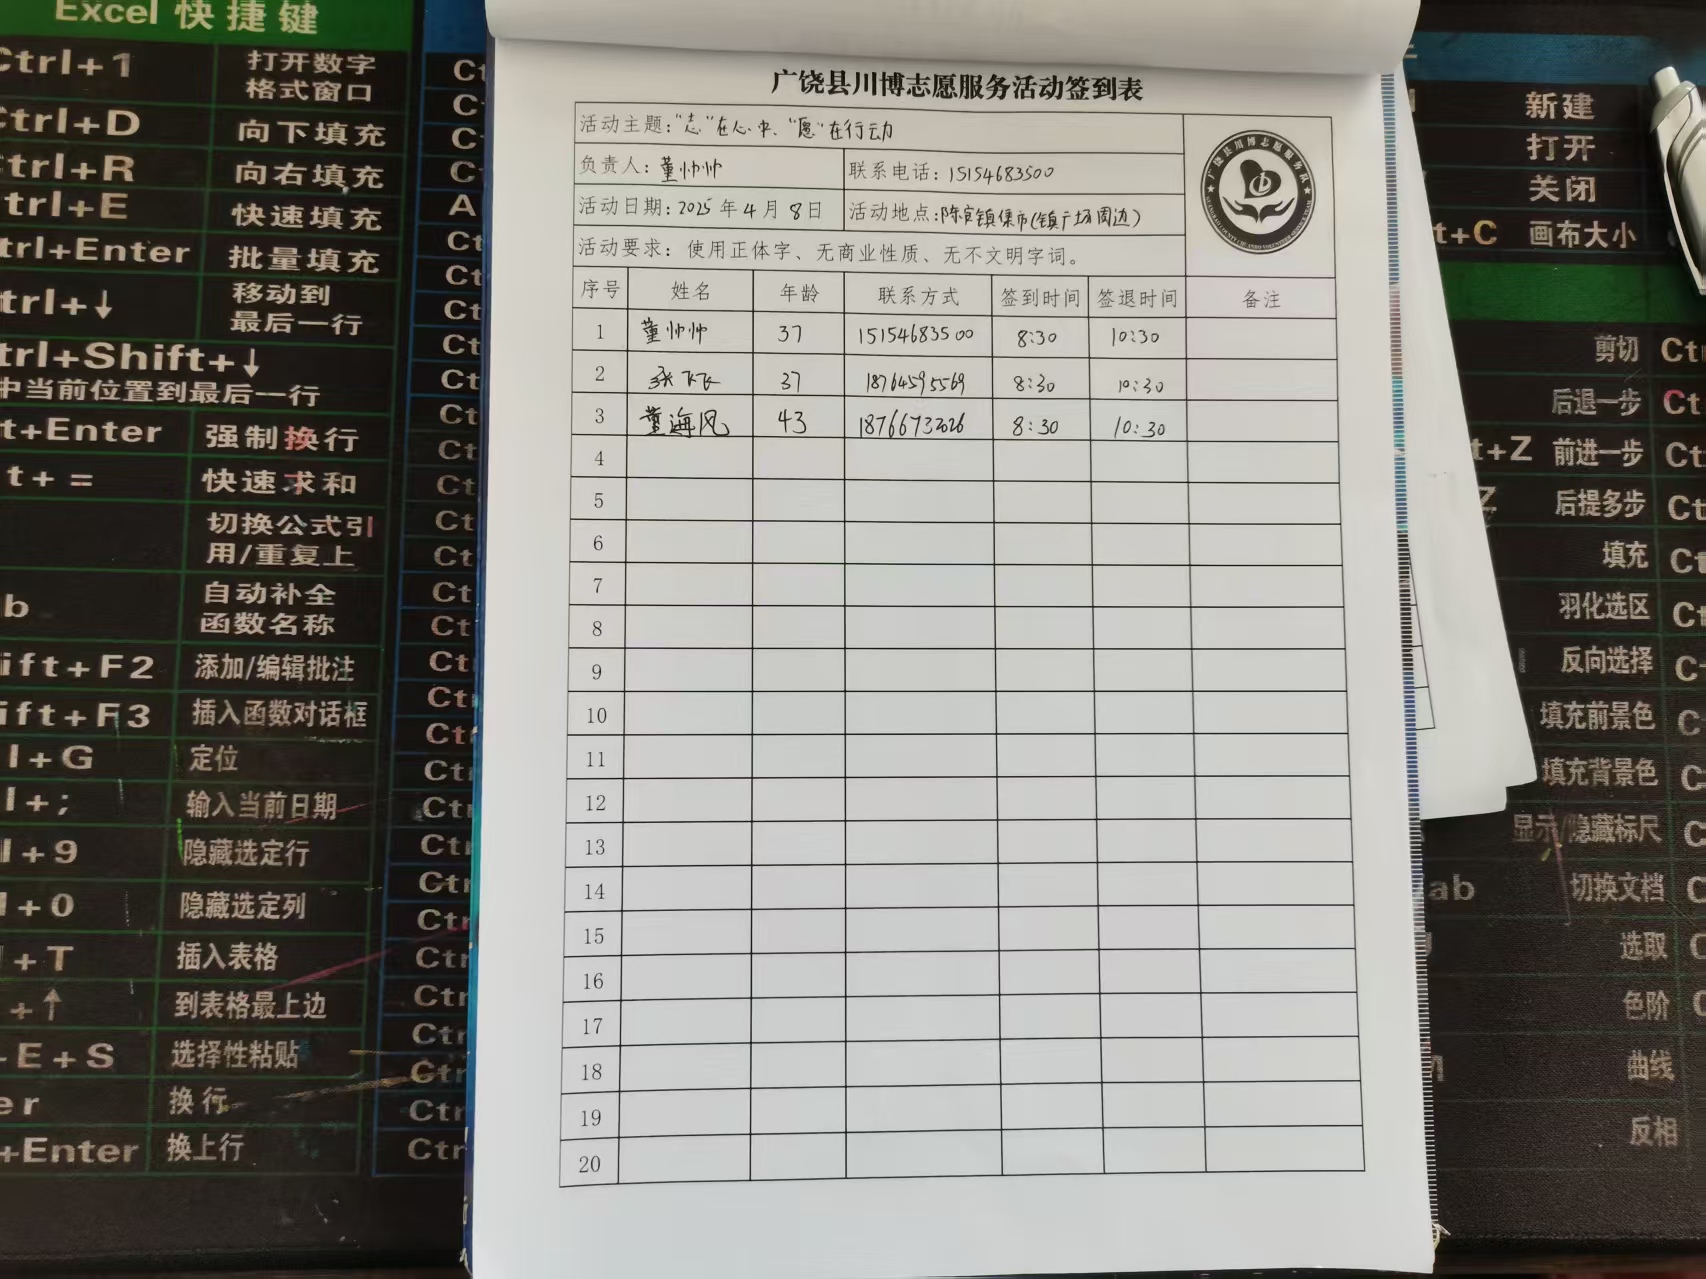 Excel 快捷键
Ctrl+1 打开数字格式窗口
Ctrl+D 向下填充
Ctrl+R 向右填充
trl+E 快速填充
trl+Enter 批量填充
trl+↓ 移动到最后一行
trl+Shift+↓
中当前位置到最后一行
t+Enter 强制换行
t+= 快速求和
切换公式引用/重复上
b 自动补全函数名称
ift+F2 添加/编辑批注
ift+F3 插入函数对话框
l+G 定位
l+; 输入当前日期
l+9 隐藏选定行
l+0 隐藏选定列
+T 插入表格
+↑ 到表格最上边
+E+S 选择性粘贴
er 换行
+Enter 换上行
广饶县川博志愿服务活动签到表
活动主题："志"在心中、"愿"在行动
负责人：董帅帅 联系电话：15154683500
活动日期：2025年4月8日 活动地点：陈官镇集市(镇广场周边)
活动要求：使用正体字、无商业性质、无不文明字词。
广饶县川博志愿服务队
序号 姓名 年龄 联系方式 签到时间 签退时间 备注
1 董帅帅 37 15154683500 8:30 10:30
2 张飞飞 37 18764595569 8:30 10:30
3 董海风 43 18766732026 8:30 10:30
4
5
6
7
8
9
10
11
12
13
14
15
16
17
18
19
20
新建
打开
关闭
t+C 画布大小
剪切 Ct
后退一步 Ct
t+Z 前进一步 Ct
Z 后提多步 Ct
填充 Ct
羽化选区 Ct
反向选择 C
填充前景色 C
填充背景色 C
显示/隐藏标尺 C
ab 切换文档 C
选取 C
色阶 C
曲线
反相